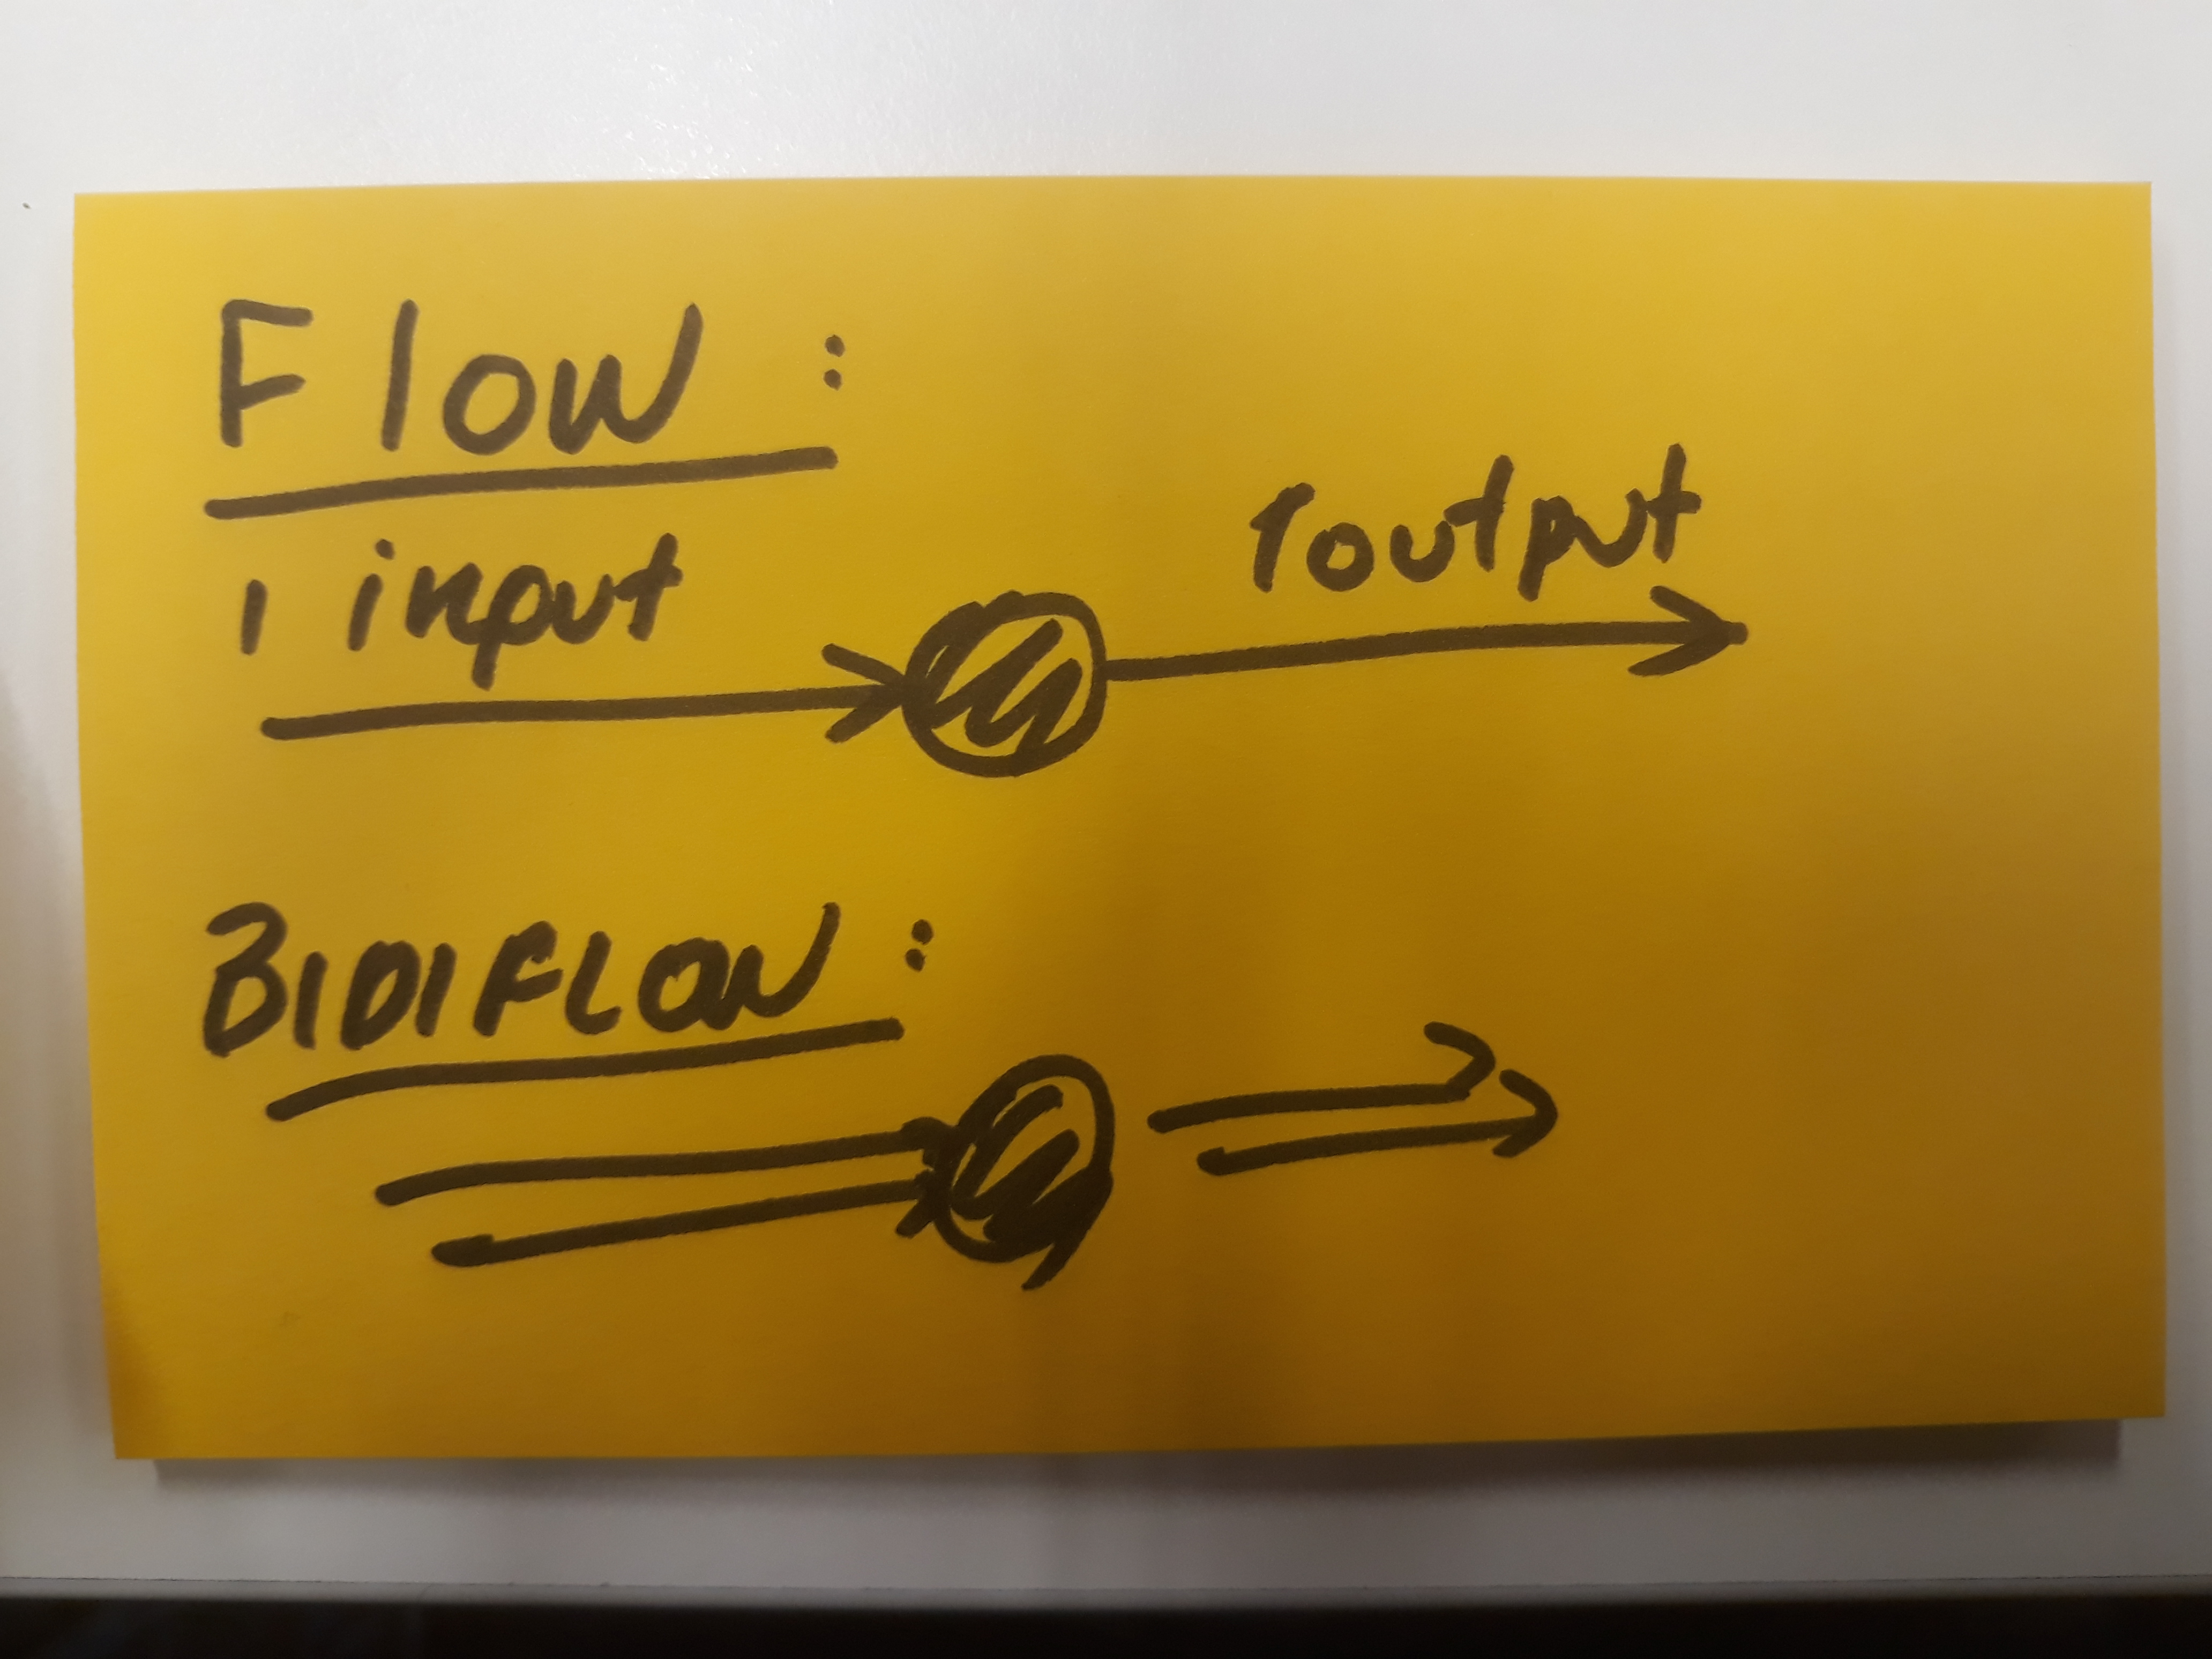 Flow :
1 input
1output
BIDIFLOW :